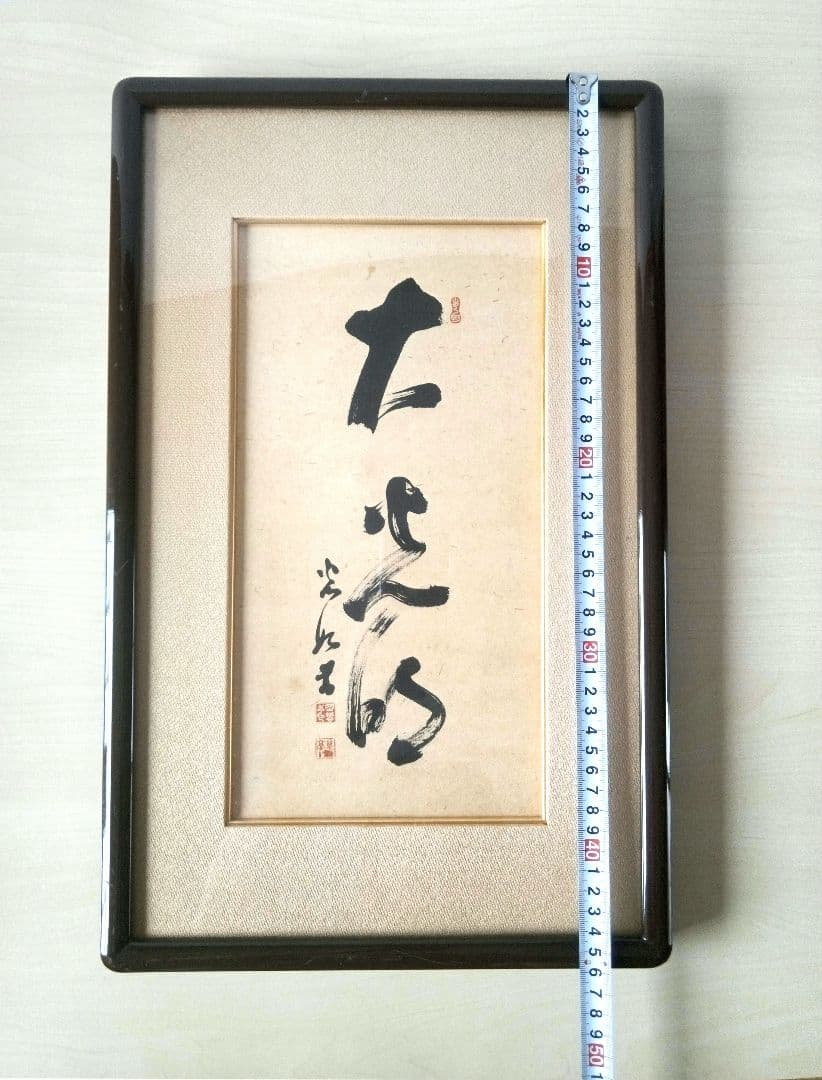 大光明
2 3 4 5 6 7 8 9 10 1 2 3 4 5 6 7 8 9 20 1 2 3 4 5 6 7 8 9 30 1 2 3 4 5 6 7 8 9 40 1 2 3 4 5 6 7 8 9 50 1